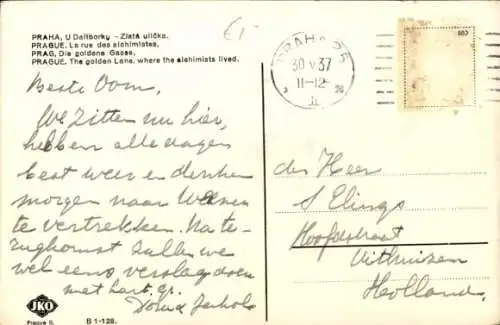 PRAHA, U Daliborky - Zlatá ulička.
PRAGUE. La rue des alchimistes.
PRAG, Die goldene Gasse.
PRAGUE. The golden Lane, where the alchimists lived.
PRAHA
30 V 37
11-12
Beste Oom,
We zitten nu hier,
hebben alle dagen
best weer en denken
morgen naar Weenen
te vertrekken. Na te-
rugkomst zullen we
wel eens verslag doen
met hart. gr.
den Heer
S Elings
Hoofdstraat
Uithuizen
Holland.
JKO
Prague II.
B 1-128.